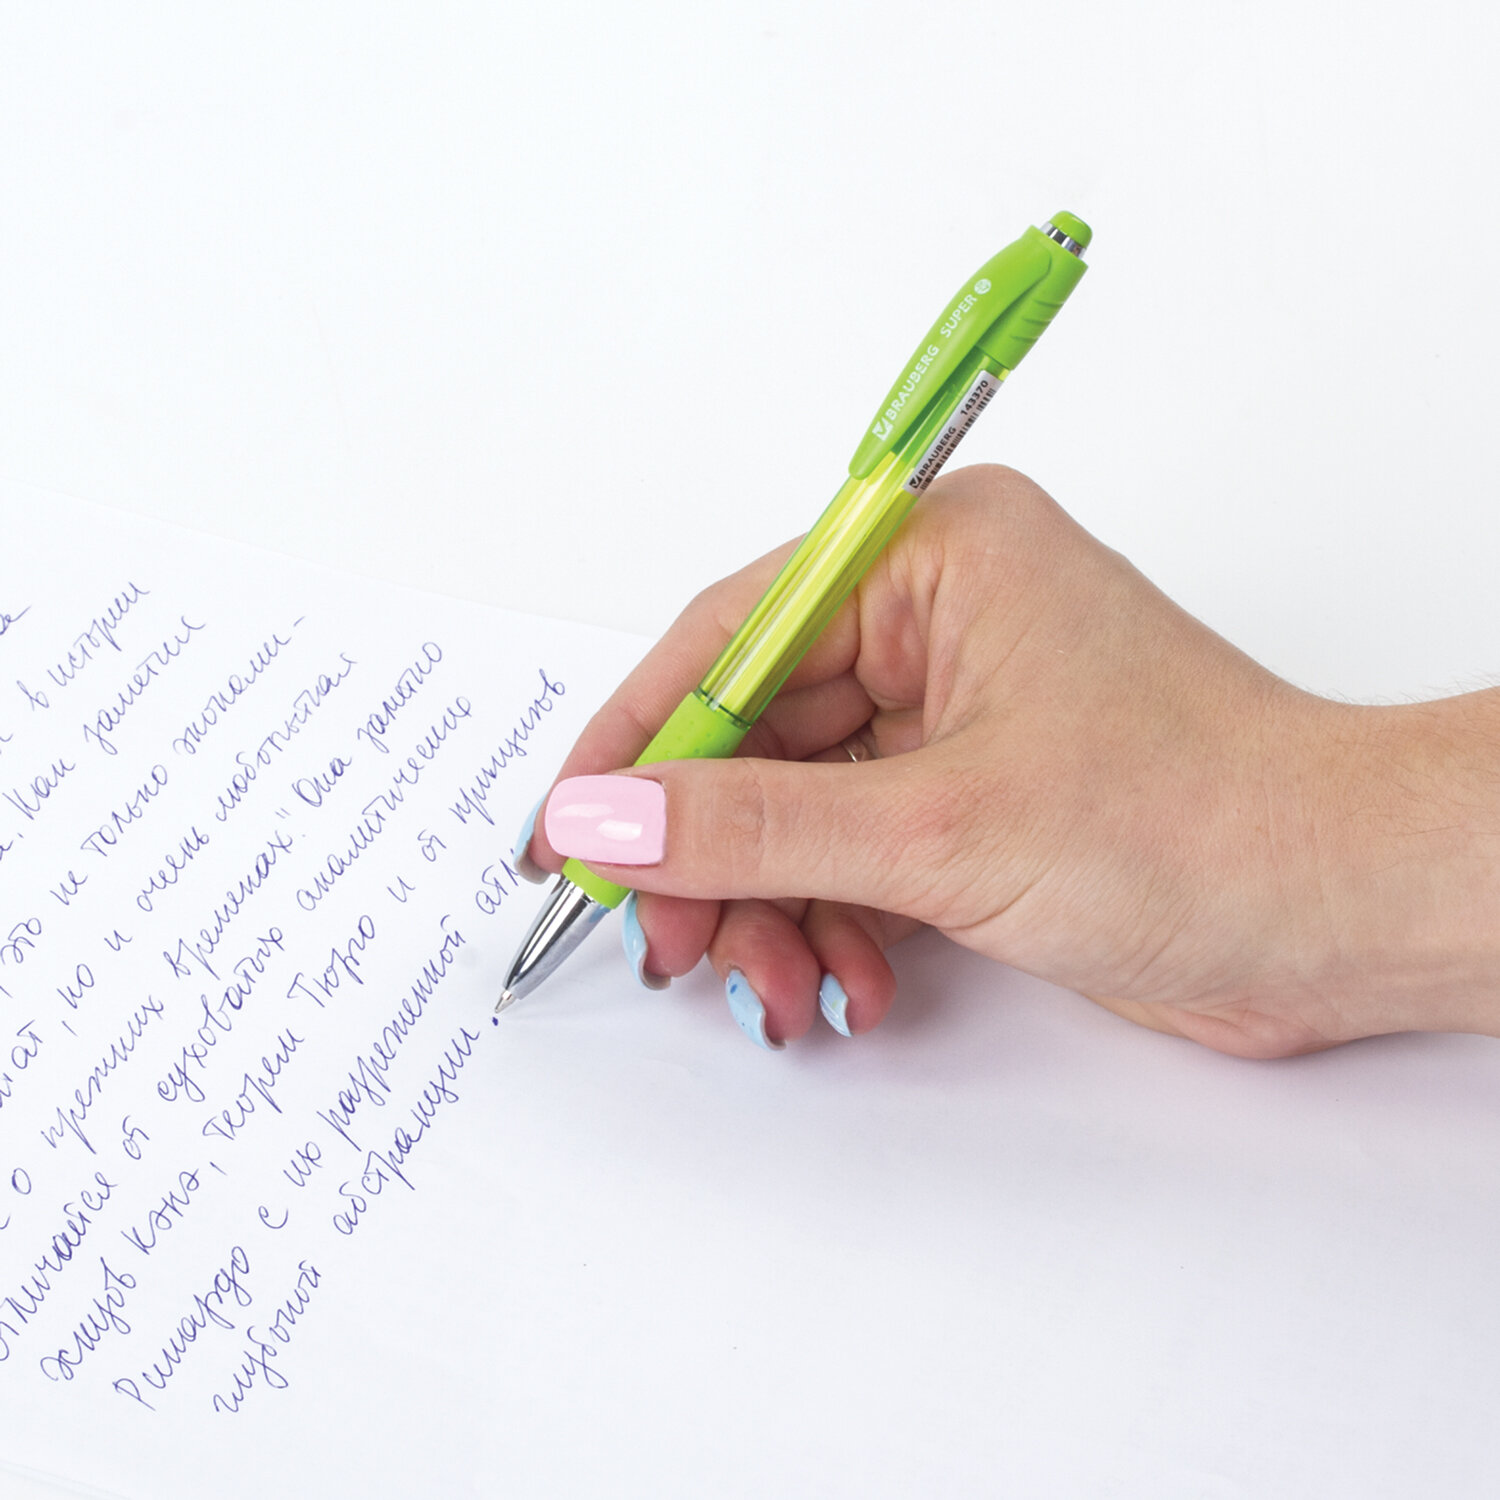 в истории
. Как заметил
, это не только экономи-
, но и очень любопытная
о прежних временах." Она заметно
отличается от суховатых аналитических
эскизов Кэнэ, теорем Тюрго и от принципов
Рикардо с их разреженной атм
глубокой абстракции.
BRAUBERG SUPER
BRAUBERG 143370